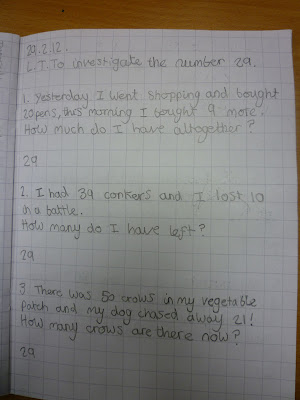 29.2.12.
L.I. To investigate the number 29.
1. Yesterday I went shopping and bought
20 pens, this morning I bought 9 more.
How much do I have altogether?
29
2. I had 39 conkers and I lost 10
in a battle.
How many do I have left?
29
3. There was 50 crows in my vegetable
patch and my dog chased away 21!
How many crows are there now?
29